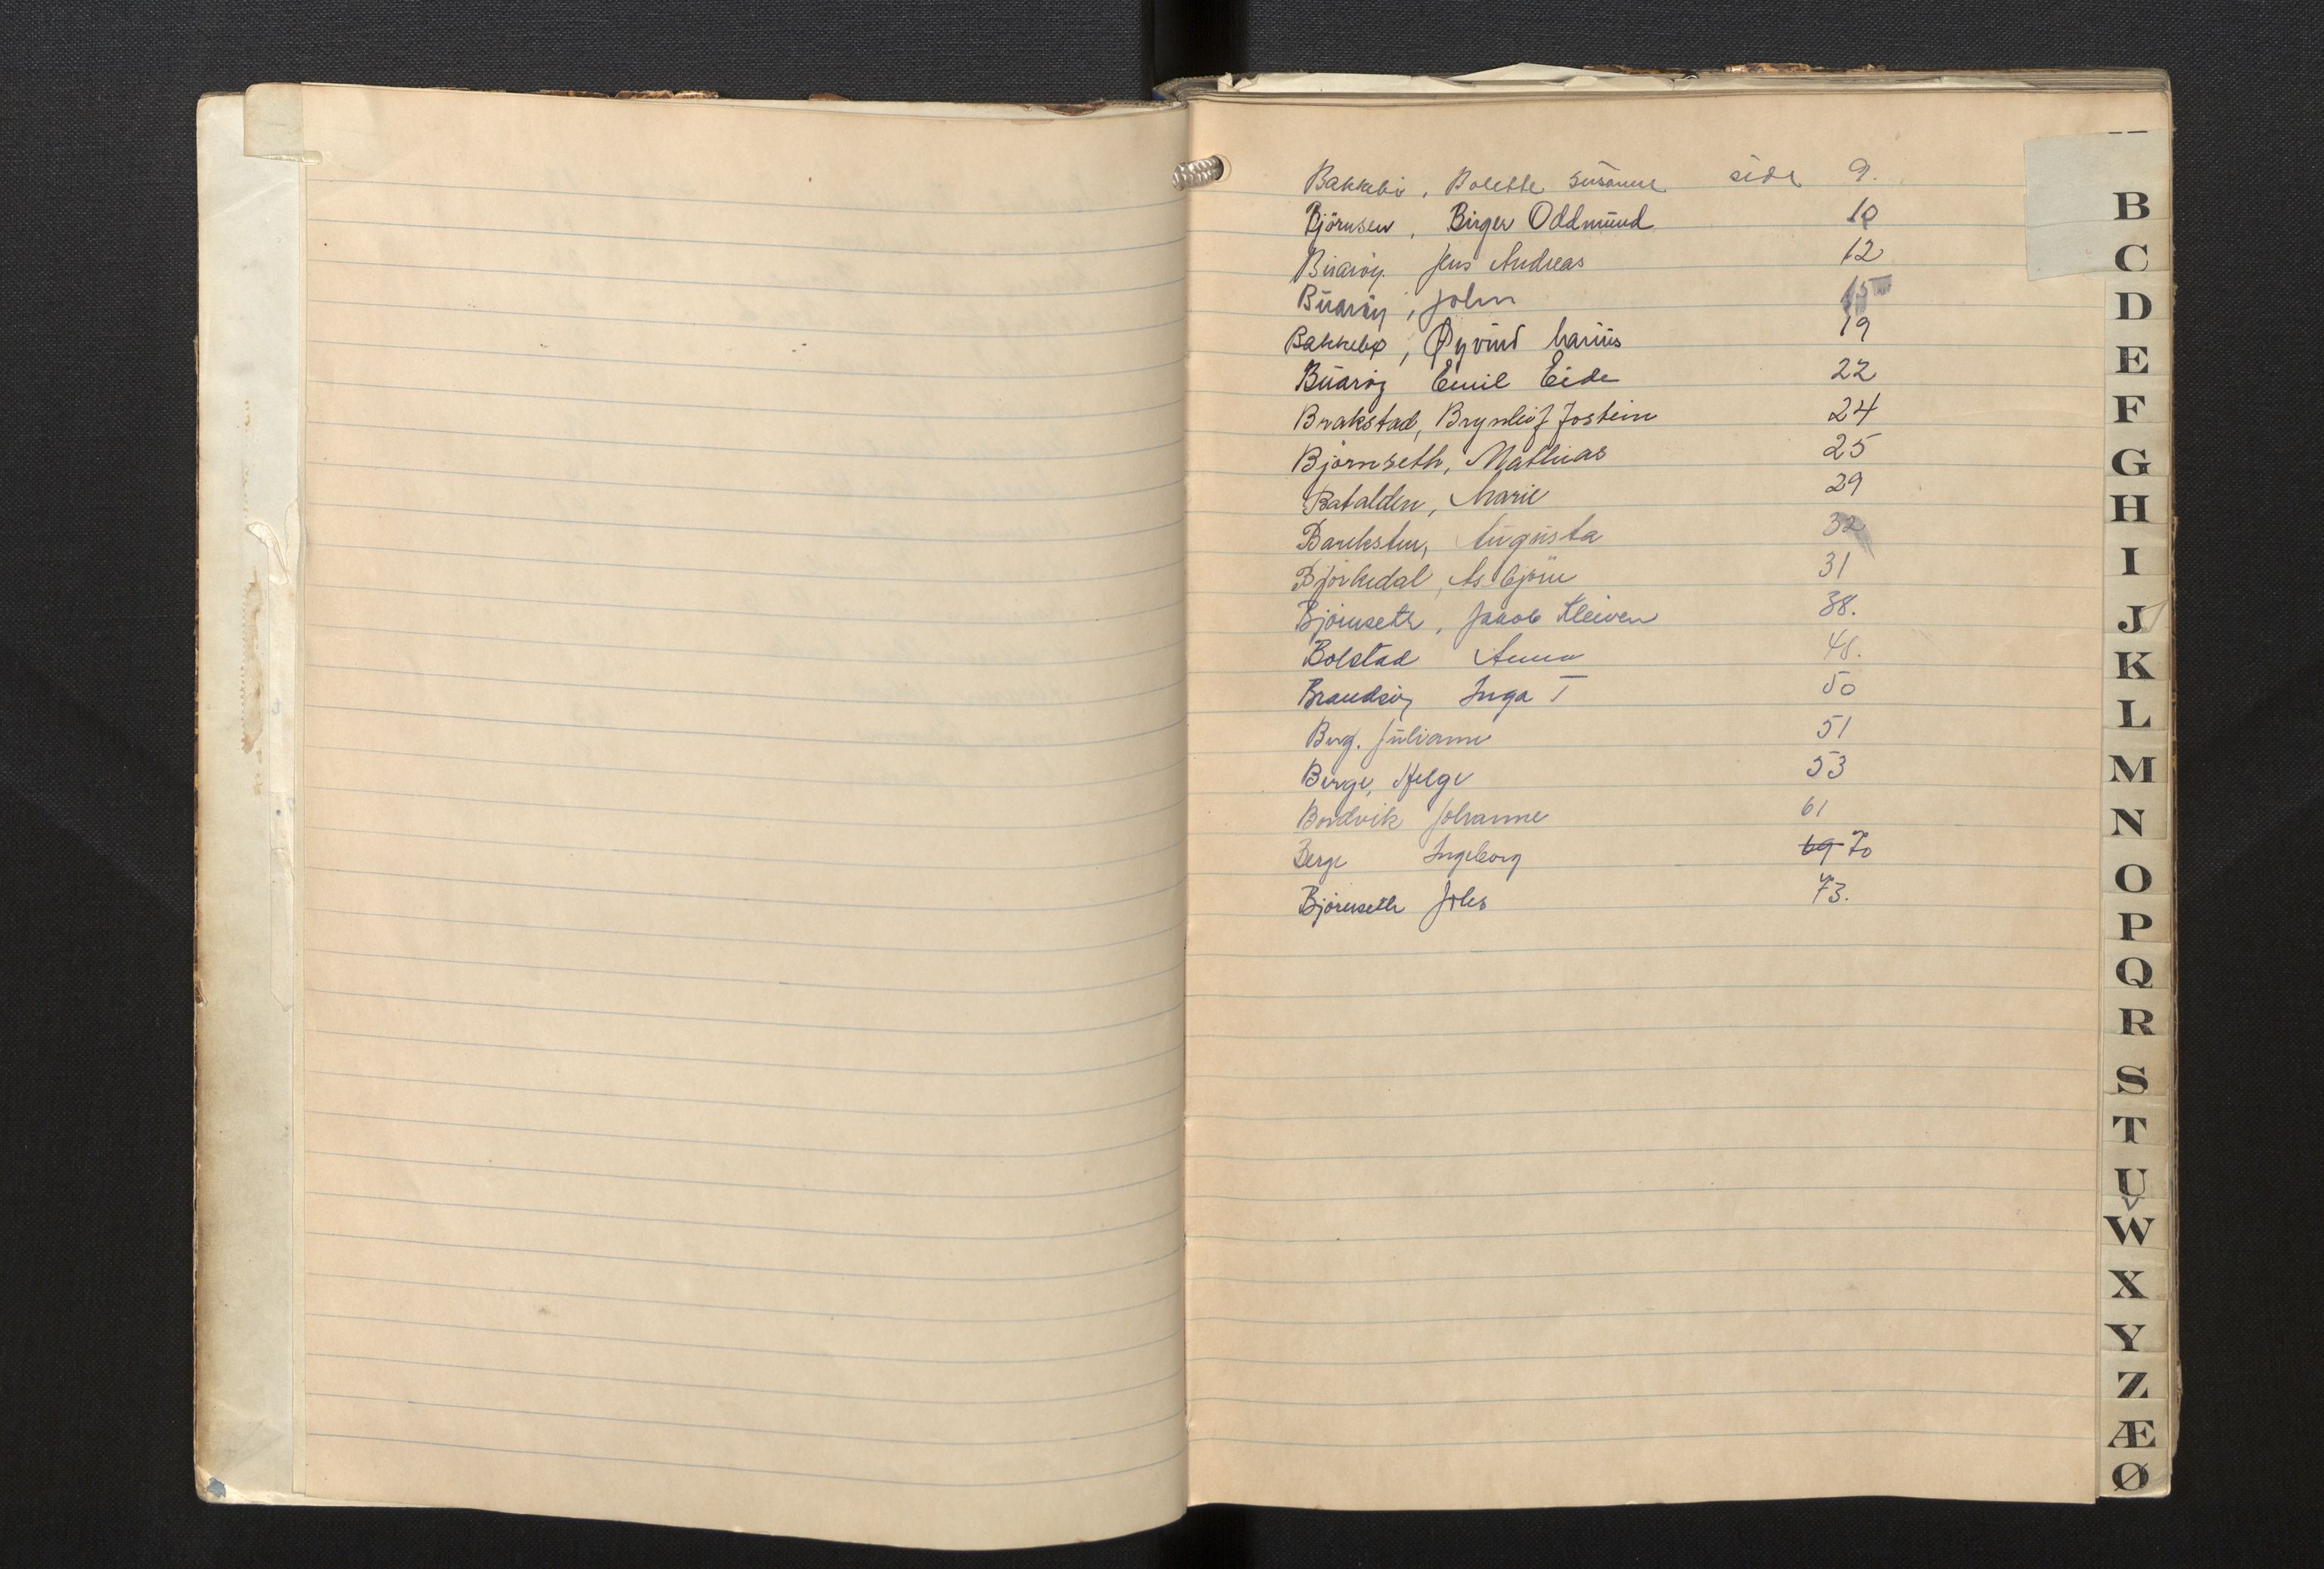 Bakkebö, Bolette Susanne side 9.
Björnsen, Birger Oddmund 10
Buaröy Jens Andreas 12
Buaröy, John 15
Bakkebø, Øyvind Marius 19
Buaröy Emil Eide 22
Brakstad, Brynleif Jostein 24
Björnseth, Mathias 25
Batalden, Marie 29
Augusta 32
Björkedal, Asbjörn 31
Björnseth, Jakob Kleiven 38.
Bolstad Anna 48.
Brandsöy Inga T 50
Berg. Julianne 51
Berge, Helge 53
Bordvik Johanne 61
Berge Ingeborg 69 70
Björnseth 73.
B
C
D
E
F
G
H
I
J
K
L
M
N
O
P
Q
R
S
T
U
V
W
X
Y
Z
Æ
Ø